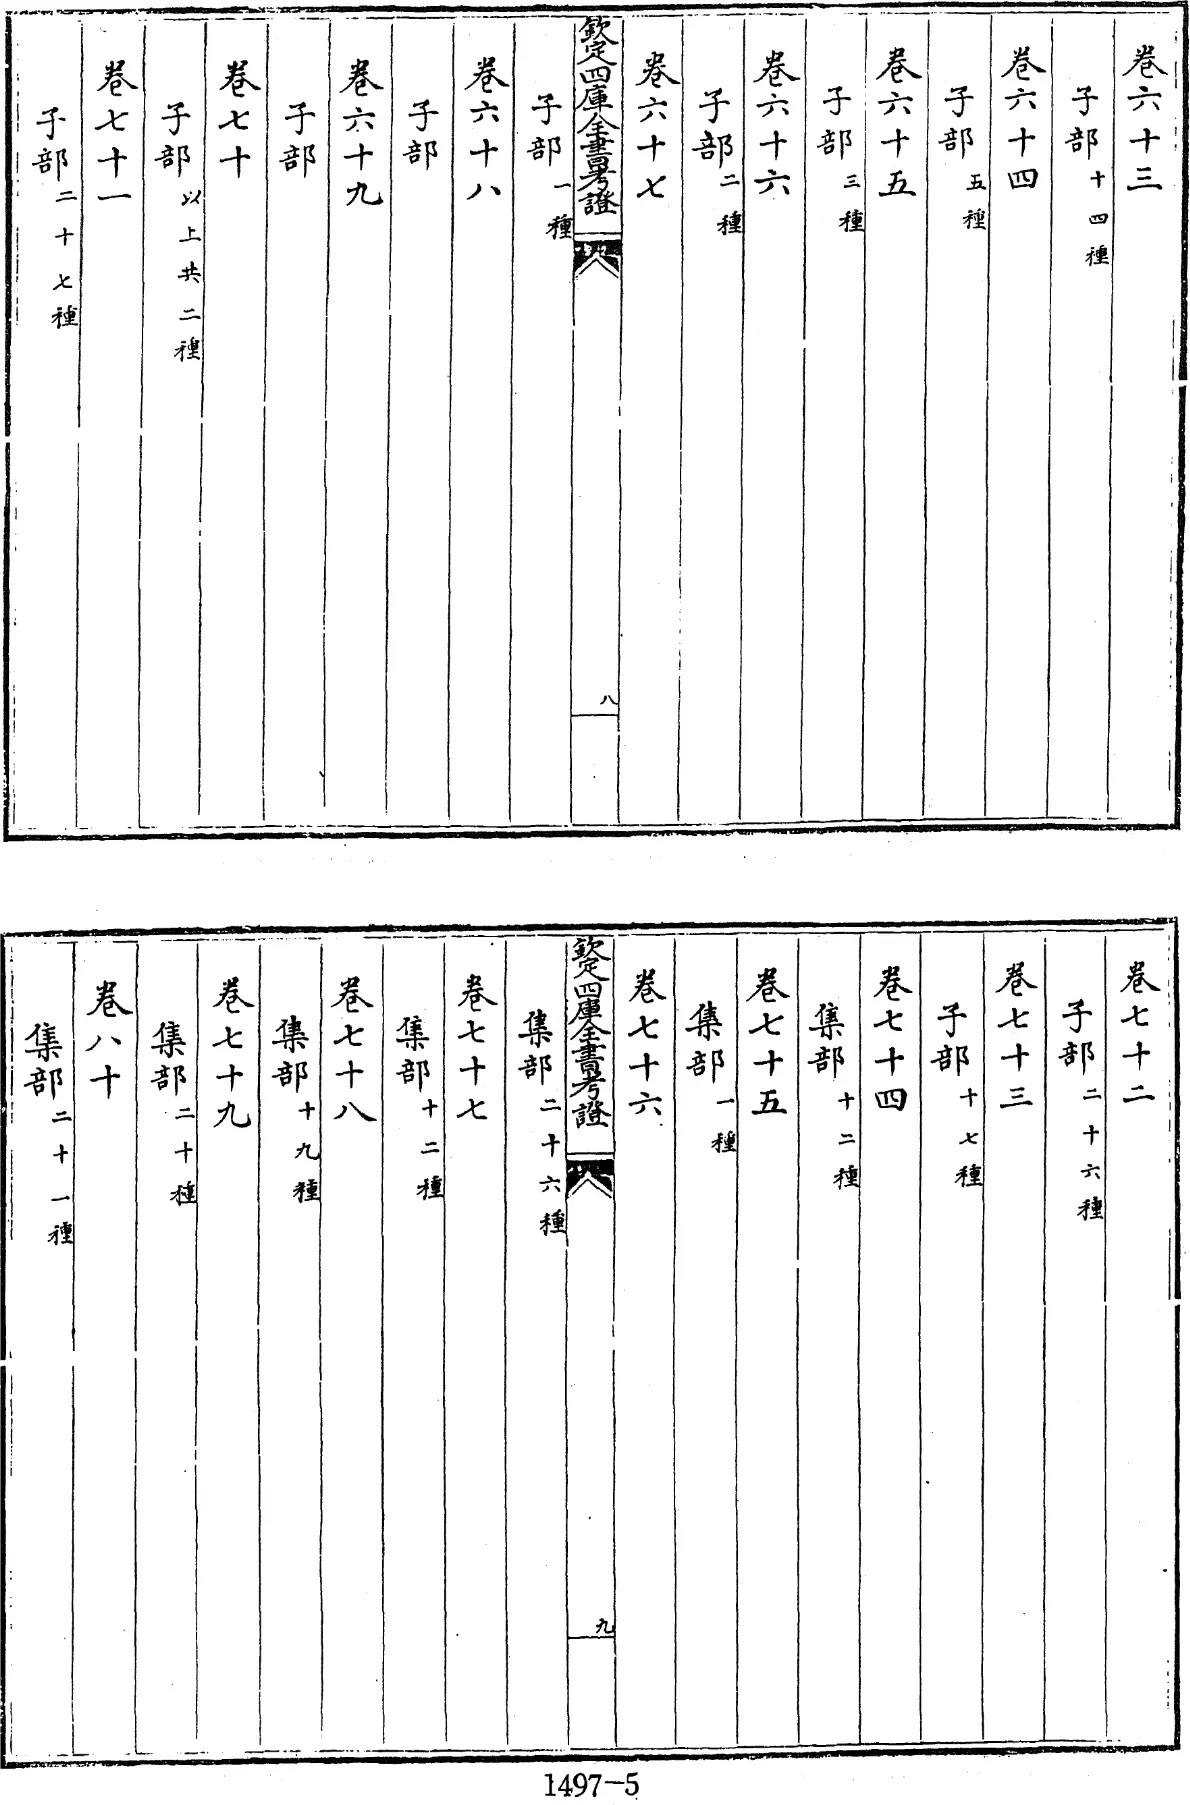 卷六十三
子部十四種
卷六十四
子部五種
卷六十五
子部三種
卷六十六
子部二種
卷六十七
欽定四庫全書考證
八
子部一種
卷六十八
子部
卷六十九
子部
卷七十
子部以上共二種
卷七十一
子部二十七種
卷七十二
子部二十六種
卷七十三
子部十七種
卷七十四
集部十二種
卷七十五
集部一種
卷七十六
欽定四庫全書考證
九
集部二十六種
卷七十七
集部十二種
卷七十八
集部十九種
卷七十九
集部二十種
卷八十
集部二十一種
1497-5